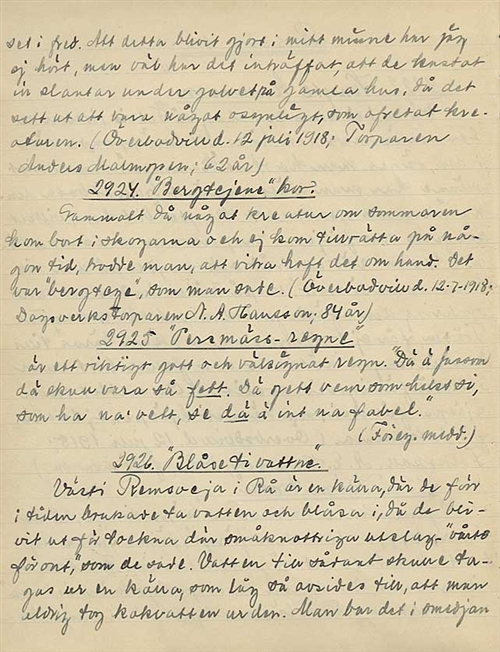 set i fred. Att detta blivit gjort i mitt minne har jag
ej hört, men väl har det inträffat, att de kastat
in slantar under golvet på gamla hus, då det
sett ut att vara något osynligt, som ofretat kre-
aturen. (Överbodvind. 12 juli 1918; Torparen
Anders Malmgren; 62 år)
2924. "Bergtejene" kor.
Gammalt då något kreatur om sommaren
kom bort i skogarna och ej kom tillrätta på nå-
gon tid, trodde man, att vitra haft det om hand. Det
var "bergteje", som man sade. (Överbodvind. 12-7-1918;
Dagsverkstorparen N. A. Hansson; 84 år)
2925 "Persmäss-regne"
är ett riktigt gott och välsignat regn. "Dä ä jussom
dä skull vara så fett. Dä gett vem som helst si,
som ha na vett, se dä ä int na fabel."
(Föreg. medd.)
2926. "Blåse ti vattne".
Västi Remsveja i Rå är en källa, där de förr
i tiden brukade ta vatten och blåsa i, då de bli-
vit ut för tockna där småknottriga utslag - "vårts
för ont," som de sade. Vatten till sådant skulle ta-
gas ur en källa, som låg så avsides till, att man
aldrig tog kokvatten ur den. Man bar det i smedjan